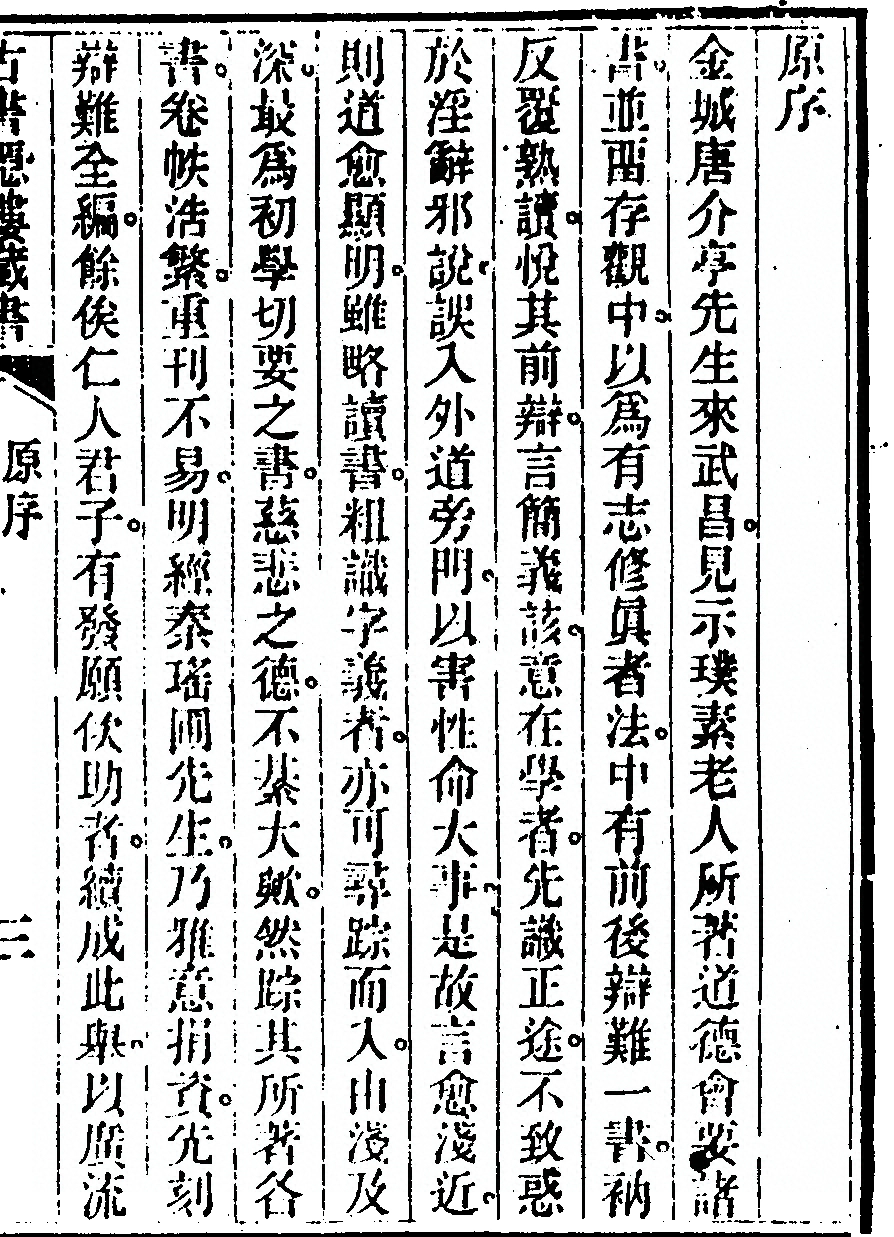 原序
金城唐介亭先生來武昌。見示璞素老人所著道德會要諸
書。並畱存觀中。以爲有志修眞者法。中有前後辯難一書。衲
反覆熟讀。悅其前辯。言簡義該。意在學者。先識正途。不致惑
於淫辭邪說。誤入外道旁門。以害性命大事。是故言愈淺近。
則道愈顯明。雖略讀書。粗識字義者。亦可尋踪而入。由淺及
深。最爲初學切要之書。慈悲之德。不綦大歟。然踪其所著各
書。卷帙浩繁。重刊不易。明經秦瑤圃先生。乃雅意捐資。先刻
辯難全編。餘俟仁人君子。有發願佽助者。續成此舉。以廣流
古書隱樓藏書
原序
三